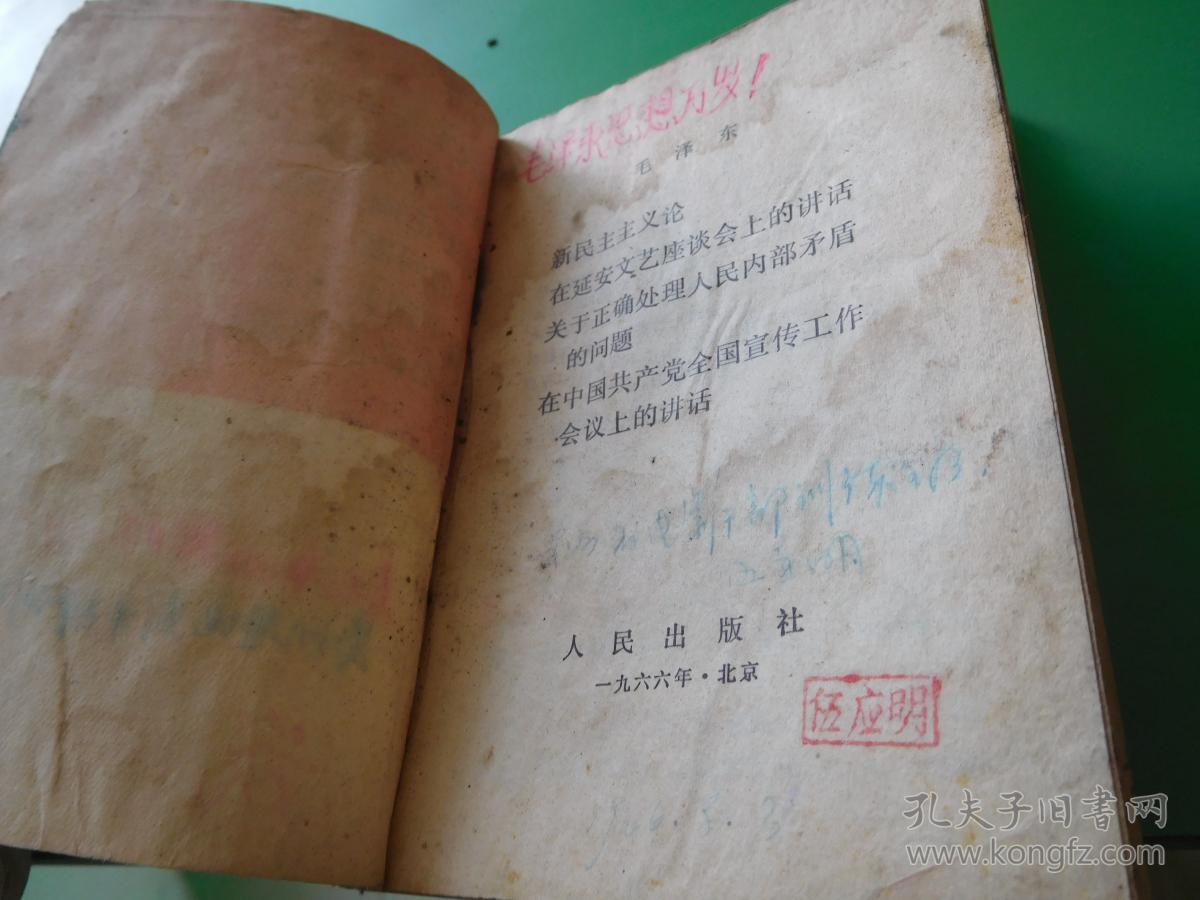 毛泽东思想万岁！
毛泽东
新民主主义论
在延安文艺座谈会上的讲话
关于正确处理人民内部矛盾
的问题
在中国共产党全国宣传工作
会议上的讲话
干部训
明
人民出版社
一九六六年·北京
伍应明
孔夫子旧书网
www.kongfz.com